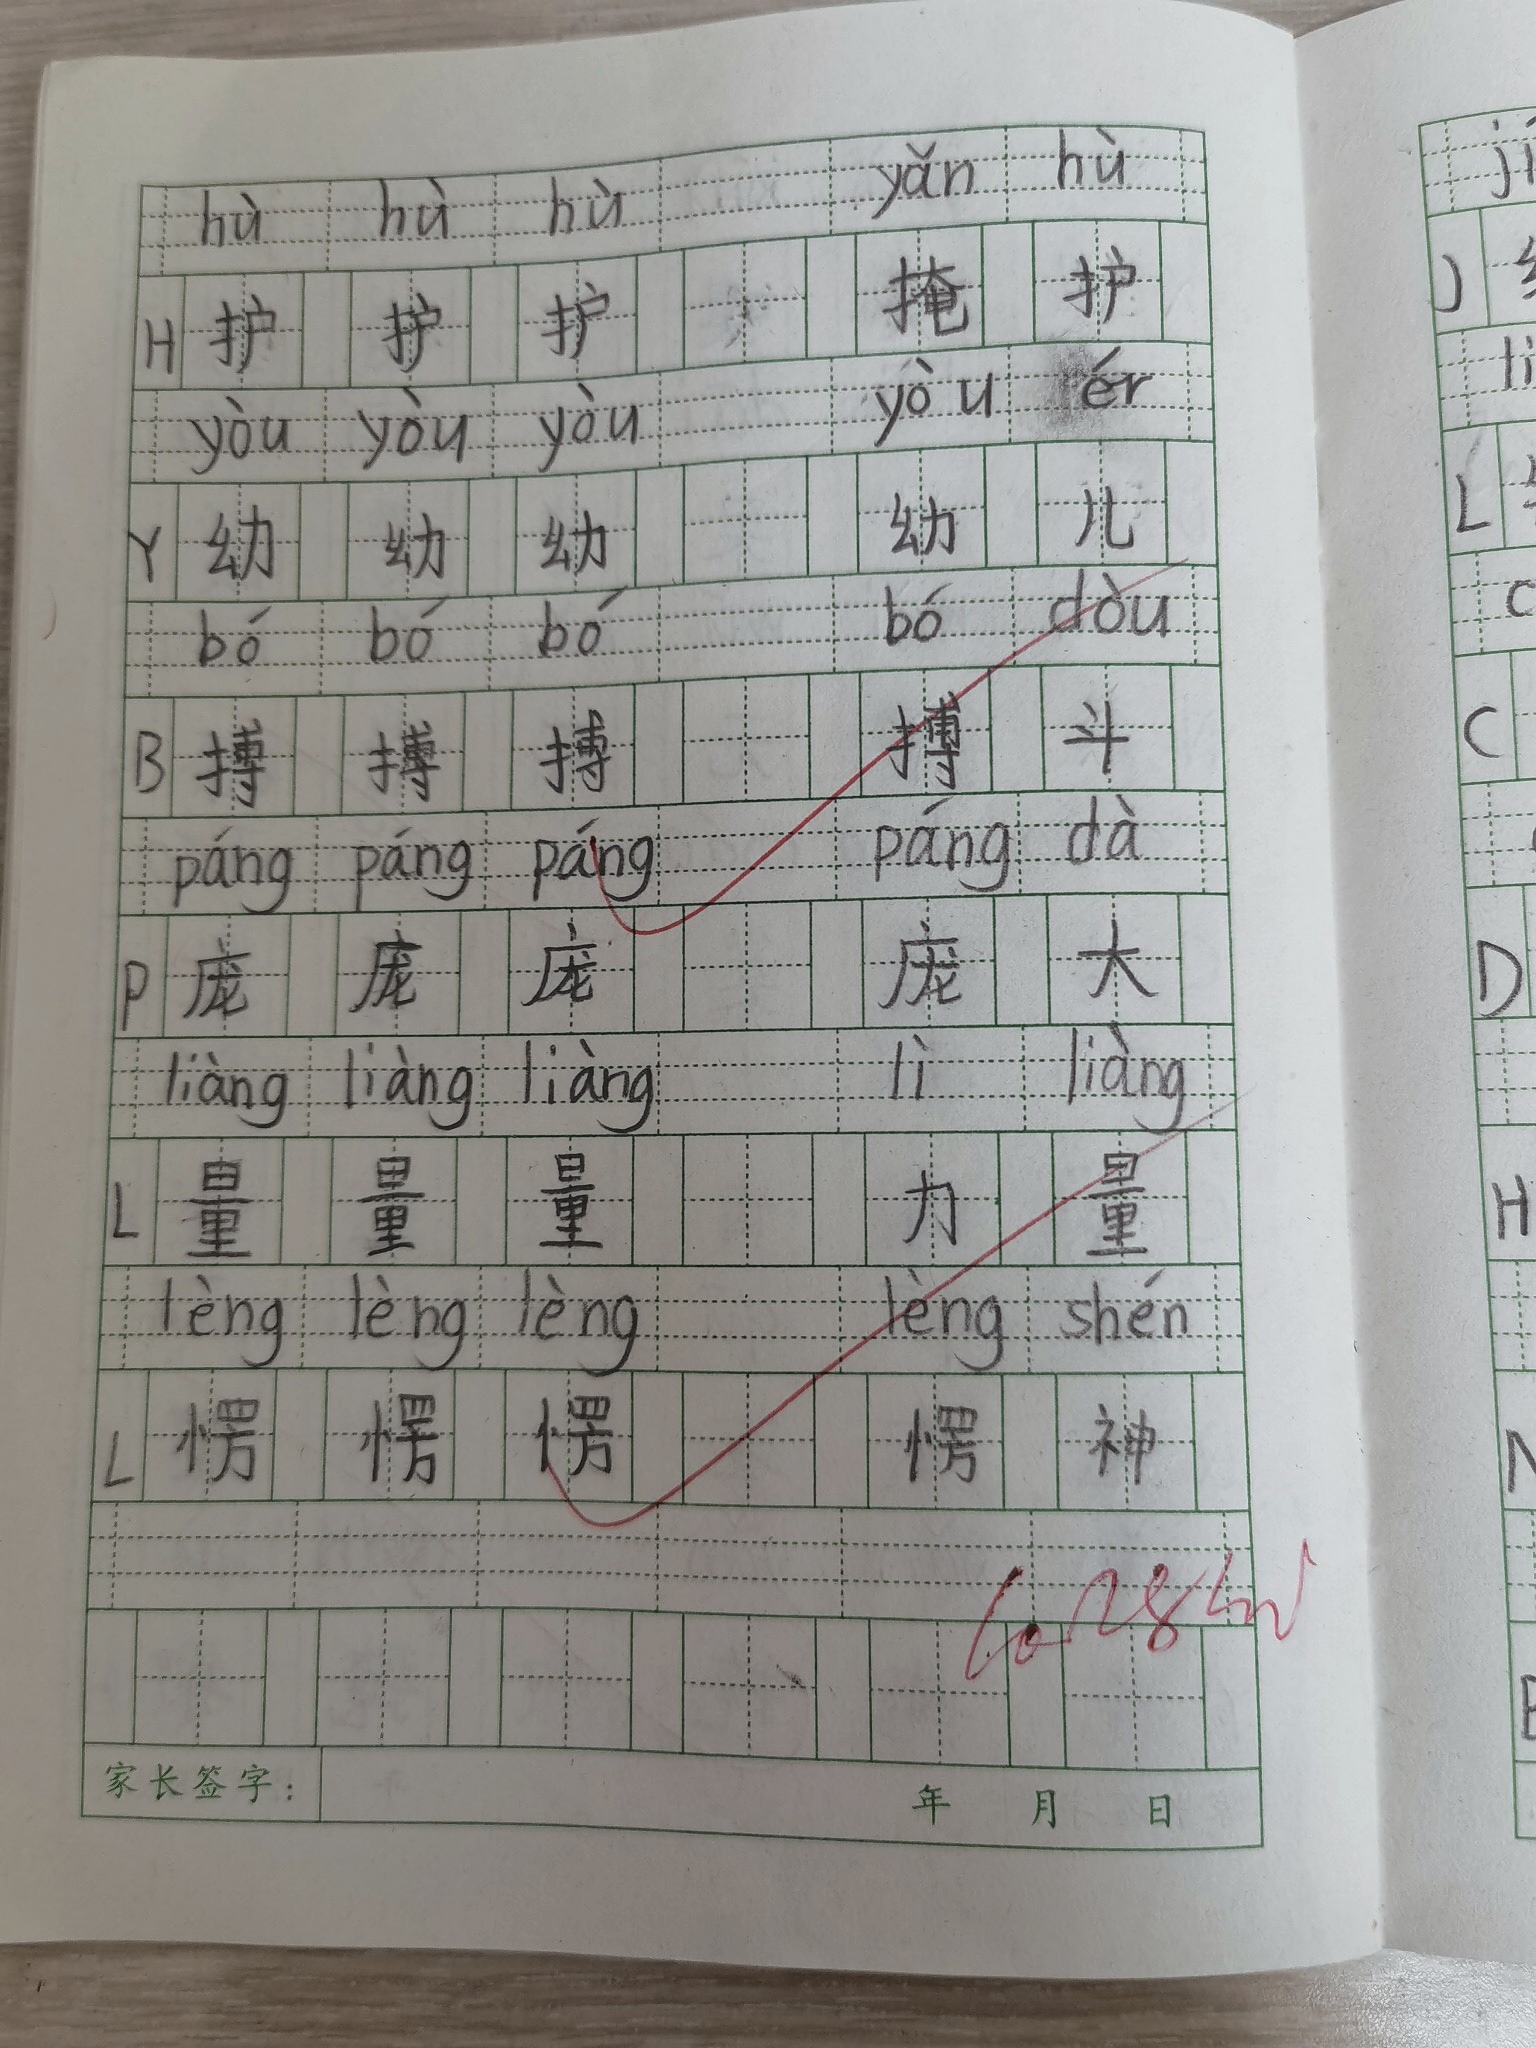 hù hù hù yǎn hù
H 护 护 护 掩 护
yòu yòu yòu yòu ér
Y 幼 幼 幼 幼 儿
bó bó bó bó dòu
B 搏 搏 搏 搏 斗
páng páng páng páng dà
P 庞 庞 庞 庞 大
liàng liàng liàng lì liàng
L 量 量 量 力 量
lèng lèng lèng lèng shén
L 愣 愣 愣 愣 神
家长签字: 年 月 日
J
li
L
C
C
D
H